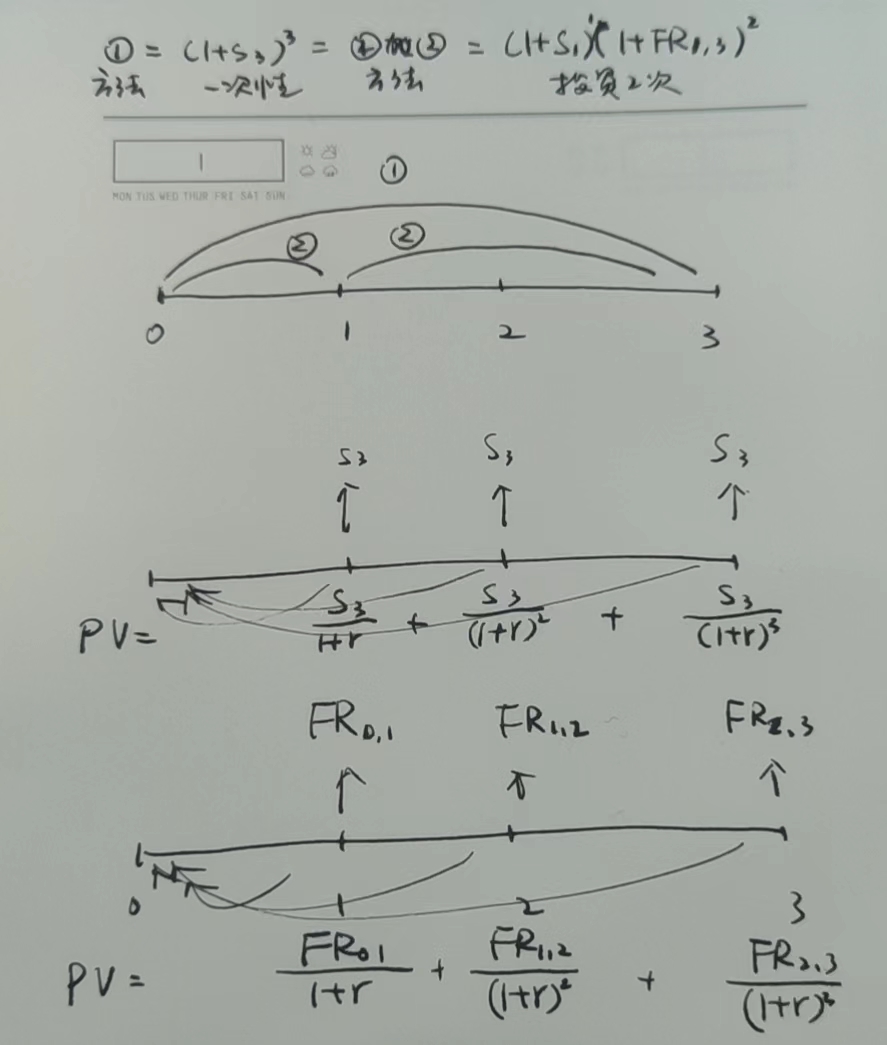 ① = (1+S₃)³ = ②加② = (1+S₁)¹(1+FR₁,₃)²
方法 一次性 方法 投资2次
1
MON TUS WED THUR FRI SAT SUN
①
② ②
0 1 2 3
S₃ S₃ S₃
↑ ↑ ↑
PV= S₃/(1+r) + S₃/(1+r)² + S₃/(1+r)³
FR₀,₁ FR₁,₂ FR₂,₃
↑ ↑ ↑
0 1 2 3
PV= FR₀₁/(1+r) + FR₁,₂/(1+r)² + FR₂,₃/(1+r)³